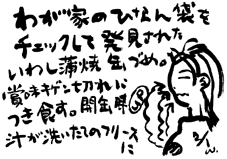 わが家のひなん袋を
チェックして発見された
いわし蒲焼缶づめ。
賞味キゲン切れに
つき食す。開缶時
汁が洗いたてのフリースに